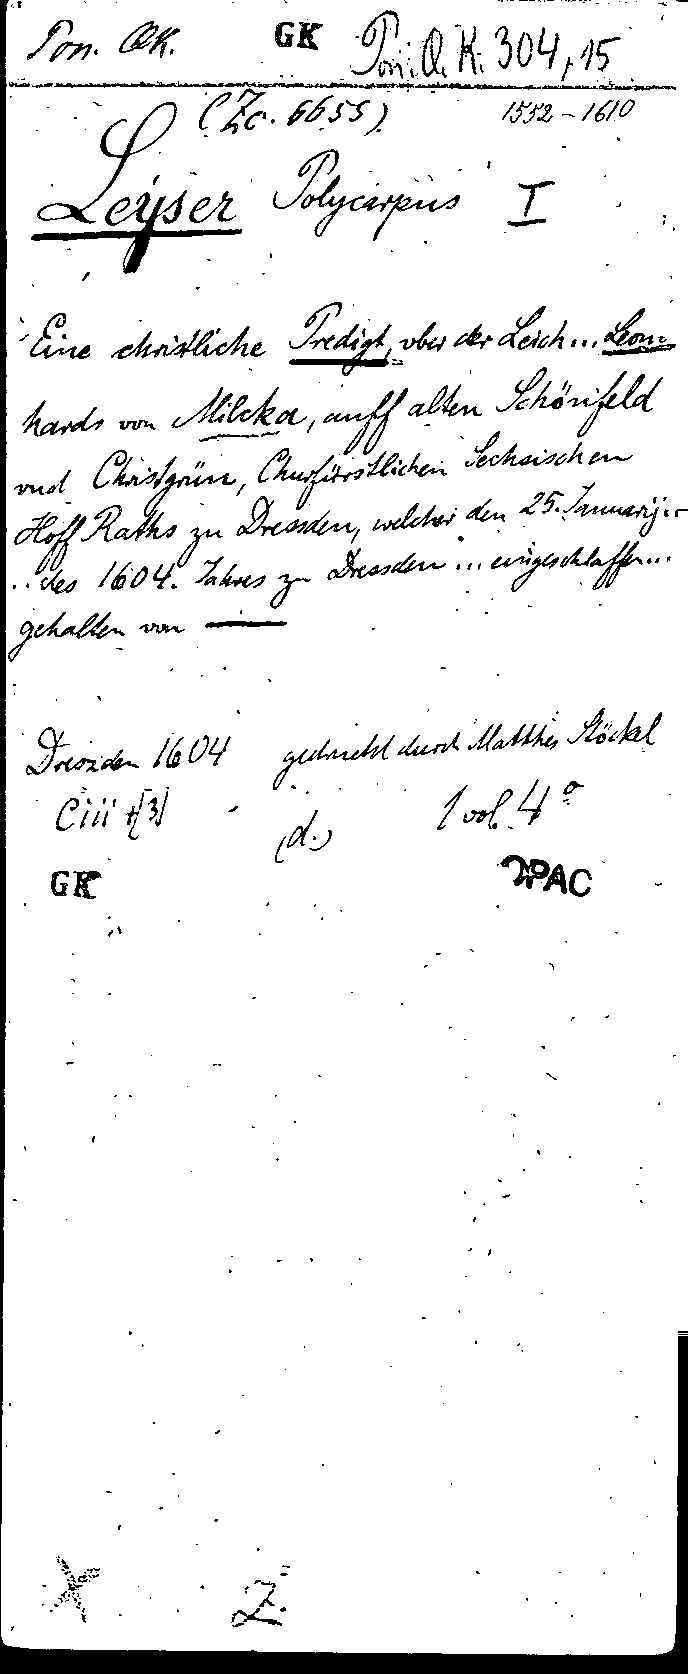 Pon. QK. GK Pon. Q. K. 304, 15
(Zc. 6655) 1552-1610
Leyser Polycarpus I
Eine christliche Predigt, vber der Leich... Leon-
hards von Milcka, auff alten Schönfeld
vnd Christgrün, Churfürstlichen Sechsischen
Hoff Raths zu Dressden, welcher den 25. Januarij...
...des 1604. Jahres zu Dressden... eingeschlaffen...
gehalten von —
Dreszden 1604 gedruckt durch Matthes Stöckel
Ciii +[3] (d.) 1 vol. 4°
GK OPAC
X Z.